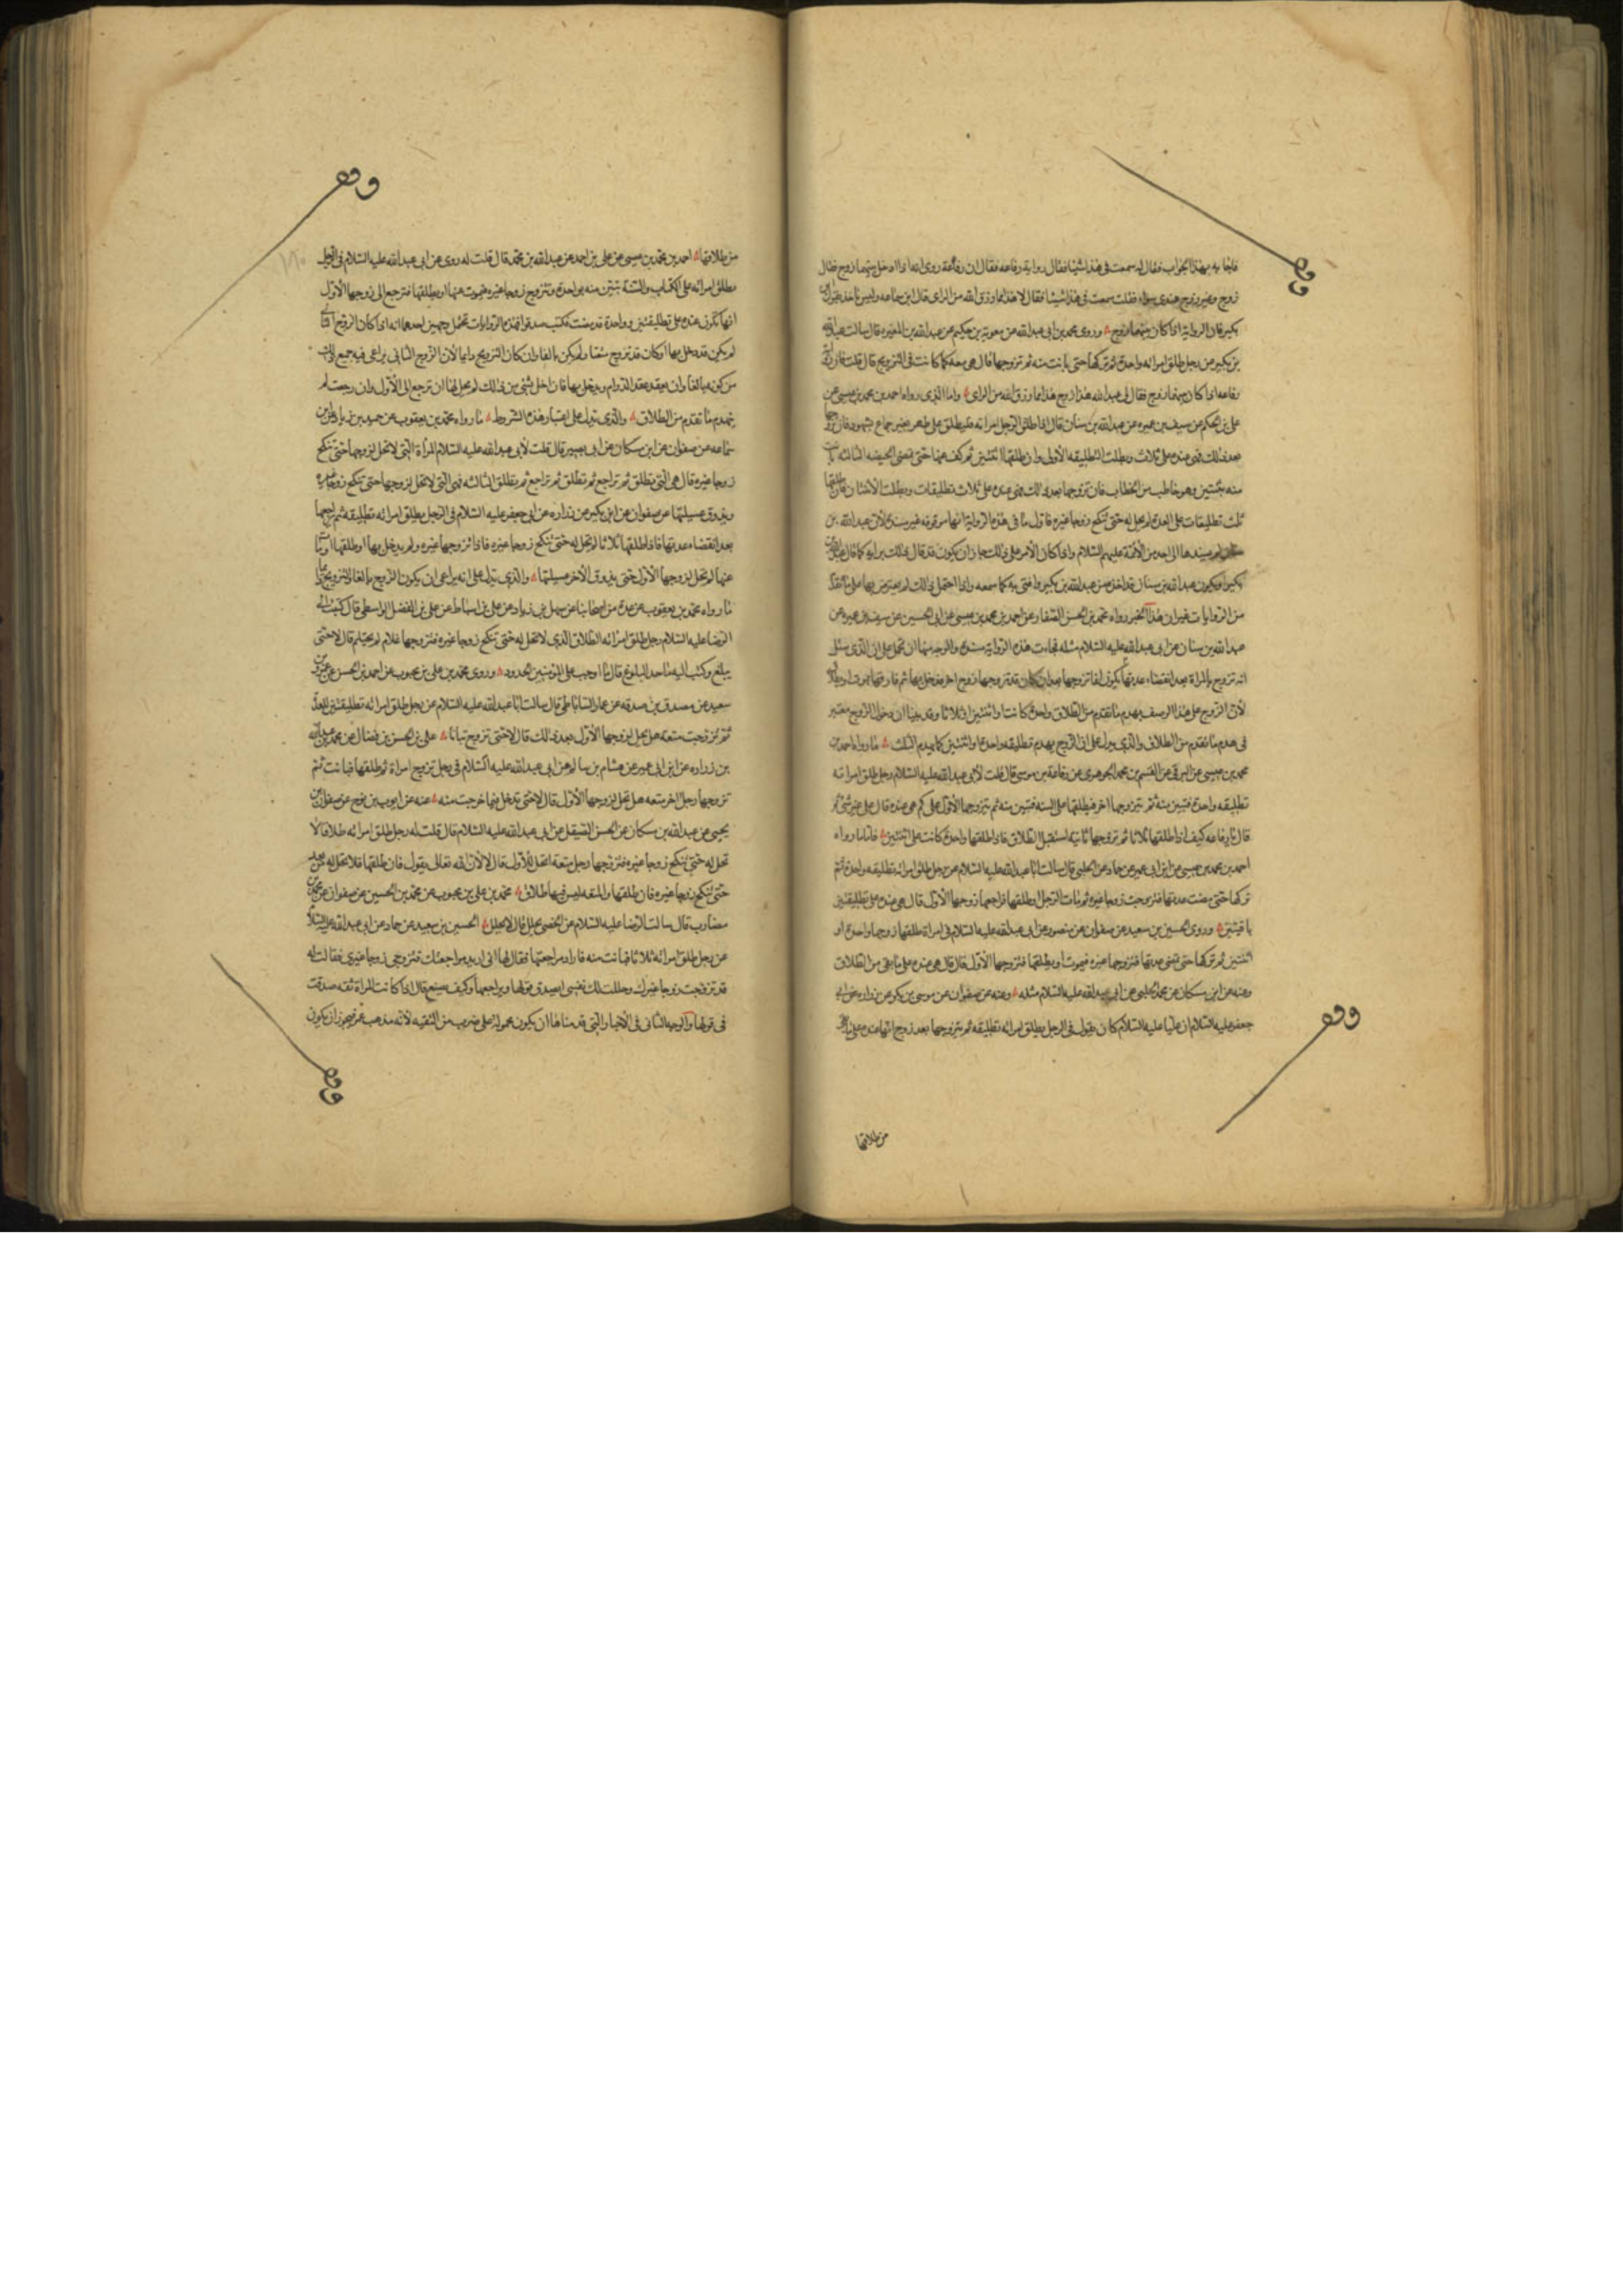 فاجابه بهذا الجواب فقال له سمعت في هذا شيئا فقال رواية رفاعه فقال ان رفاعة روى انه اذا دخل بينهما زوج فقال
زوج وغير زوج عندي سواء فقلت سمعت في هذا شيئا فقال لا هذا مما رزق الله من الراى قال ابن سماعه وليس ناخذ بقول ابن
بكير فان الرواية اذا كان بينهما زوج وروى محمد بن ابي عبد الله عن معوية بن حكيم عن عبد الله بن المغيره قال سالت عبد الله
بن بكير عن رجل طلق امراته واحدة ثم تركها حتى بانت منه ثم تزوجها قال هي معه كما كانت في التزويج قال قلت فان رواية
رفاعه اذا كان بينهما زوج فقال لي عبد الله هذا زوج هذا مما رزق الله من الراى واما الذى رواه احمد بن محمد بن عيسى عن
على بن الحكم عن سيف بن عميره عن عبد الله بن سنان قال اذا طلق الرجل امراته فليطلق على طهر بغير جماع بشهود فان تزوجها
بعد ذلك فهي عنده على ثلاث وبطلت التطليقه الأولى وان طلقها اثنتين ثم كف عنها حتى تمضى الحيضه الثالثه بانت
منه بثنتين وهو خاطب من الخطاب فان تزوجها بعد ذلك فهي عنده على ثلاث تطليقات وبطلت الاثنتان فان طلقها
ثلث تطليقات على العدة لم يحل له حتى تنكح زوجا غيره فاول ما في هذه الرواية انها موقوفه غير مسندة لأن عبد الله بن
سنان لم يسندها الى احد من الأئمة عليهم السلام واذا كان الأمر على ذلك جاز ان يكون قد قال ذلك برايه كما قال عبد الله بن
بكير او يكون عبد الله بن سنان قد اخذه من عبد الله بن بكير وافتى به كما سمعه واذا احتمل ذلك لم يعترض بها على ما تقدم
من الروايات غير ان هذا الخبر رواه محمد بن الحسن الصفار عن احمد بن محمد بن عيسى عن ابى الحسين عن سيف بن عميره عن
عبد الله بن سنان عن ابى عبد الله عليه السلام مثله فجاءت هذه الرواية مسنده والوجه فيها ان تحمل على ان الذي سئل
انه تزوج بالمراة بعد انقضاء عدتها يكون انما تزوجها بعد ان كان قد تزوجها زوج اخر فدخل بها ثم فارقها بموت او طلاق
لأن الزوج على هذا الوصف يهدم ما تقدم من الطلاق واحدة كانت او اثنتين او ثلاثا وقد بينا ان دخول الزوج معتبر
في هدم ما تقدم من الطلاق والذى يدل على ان الزوج يهدم تطليقه واحدة او اثنتين كما يهدم الثلث ما رواه احمد بن
محمد بن عيسى عن البرقى عن القسم بن محمد الجوهرى عن رفاعة بن موسى قال قلت لأبي عبد الله عليه السلام رجل طلق امراته
تطليقه واحدة فتبين منه ثم يتزوجها اخر فيطلقها على السنه فتبين منه ثم يتزوجها الأول على كم هى عنده قال على غير شئ ثم
قال يا رفاعه كيف اذا طلقها ثلاثا ثم تزوجها ثانية استقبل الطلاق فاذا طلقها واحدة كانت على اثنتين فاما ما رواه
احمد بن محمد بن عيسى عن ابن ابي عمير عن حماد عن الحلبي قال سالت ابا عبد الله عليه السلام عن رجل طلق امراته تطليقه واحدة ثم
تركها حتى مضت عدتها فتزوجت زوجا غيره ثم مات الرجل او طلقها فراجعها زوجها الأول قال هى عنده على تطليقتين
باقيتين وروى الحسين بن سعيد عن صفوان عن منصور عن ابى عبد الله عليه السلام في امراة طلقها زوجها واحدة او
اثنتين ثم تركها حتى تمضى عدتها فتزوجها غيره فيموت او يطلقها فتزوجها الأول قال قال هى عنده على ما بقى من الطلاق
وعنه عن ابن مسكان عن محمد الحلبي عن ابى عبد الله عليه السلام مثله وعنه عن صفوان عن موسى بن بكر عن زراره عن ابى
جعفر عليه السلام ان عليا عليه السلام كان يقول في الرجل يطلق امراته تطليقه ثم يتزوجها بعد زوج انها عنده على ما بقى
من طلاقها
وقف
وقف
من طلاقها احمد بن محمد بن عيسى عن على بن احمد عن عبد الله بن محمد قال قلت له روى عن ابى عبد الله عليه السلام في الرجل
يطلق امراته على الكتاب والسنة تبين منه بواحدة وتتزوج زوجا غيره فيموت عنها او يطلقها فترجع الى زوجها الأول
انها تكون عنده على تطليقتين وواحدة قد مضت فكتب صدقوا فهذه الروايات تحتمل وجهين احدهما انه اذا كان الزوج الثانى
لم يكن قد دخل بها او كان قد تزوج متعة او لم يكن بالغا وان كان التزويج دايما لأن الزوج الثانى يراعى فيه جميع ذلك
من كونه بالغا وان يعقد عقد الدوام ويدخل بها فان اخل بشئ من ذلك لم يحل لها ان ترجع الى الأول وان رجعت لم
ينهدم ما تقدم من الطلاق والذى يدل على اعتبار هذه الشروط ما رواه محمد بن يعقوب عن حميد بن زياد عن ابن
سماعه عن صفوان عن ابن مسكان عن ابى بصير قال قلت لأبى عبد الله عليه السلام المرأة التى لا تحل لزوجها حتى تنكح
زوجا غيره قال هى التى تطلق ثم تراجع ثم تطلق ثم تراجع ثم تطلق الثالثه فهى التى لا تحل لزوجها حتى تنكح زوجا غيره
ويذوق عسيلتها عن صفوان عن ابن بكير عن زراره عن ابى جعفر عليه السلام في الرجل يطلق امراته تطليقه ثم يراجعها
بعد انقضاء عدتها فاذا طلقها ثلاثا لم تحل له حتى تنكح زوجا غيره فاذا تزوجها غيره ولم يدخل بها او طلقها او مات
عنها لم تحل لزوجها الأول حتى يذوق الأخر عسيلتها والذى يدل على انه يراعى ان يكون الزوج بالغا والتزويج دايما
ما رواه محمد بن يعقوب عن عدة من اصحابنا عن سهل بن زياد عن على بن اسباط عن على بن الفضل الواسطى قال كتبت الى
الرضا عليه السلام رجل طلق امراته الطلاق الذى لا تحل له حتى تنكح زوجا غيره فتزوجها غلام لم يحتلم قال لا حتى
يبلغ وكتبت اليه ما حد البلوغ قال ما اوجب على المؤمنين الحدود وروى محمد بن على بن محبوب عن احمد بن الحسن عن عمرو بن
سعيد عن مصدق بن صدقه عن عمار الساباطى قال سالت ابا عبد الله عليه السلام عن رجل طلق امراته تطليقتين للعدة
ثم تزوجت متعة هل تحل لزوجها الأول بعد ذلك قال لا حتى تزوج بتاتا على بن الحسن بن فضال عن محمد بن عبد الله
بن زراره عن ابن ابى عمير عن هشام بن سالم عن ابى عبد الله عليه السلام في رجل تزوج امراة ثم طلقها فبانت ثم
تزوجها رجل اخر متعه هل تحل لزوجها الأول قال لا حتى تدخل فيما خرجت منه عنه عن ايوب بن نوح عن صفوان بن
يحيى عن عبد الله بن مسكان عن الحسن الصيقل عن ابى عبد الله عليه السلام قال قلت له رجل طلق امراته طلاقا لا
تحل له حتى تنكح زوجا غيره فتزوجها رجل متعة اتحل للأول قال لا لأن الله تعالى يقول فان طلقها فلا تحل له من بعد
حتى تنكح زوجا غيره فان طلقها والمتعه ليس فيها طلاق محمد بن على بن محبوب عن محمد بن الحسين عن صفوان عن محمد بن
مضارب قال سالت الرضا عليه السلام عن الخصى يحلل قال لا يحلل الحسين بن سعيد عن حماد عن ابى عبد الله عليه السلام
عن رجل طلق امراته ثلاثا فبانت منه فاراد مراجعتها فقال لها انى اريد مراجعتك فتزوجى زوجا غيرى فقالت له
قد تزوجت زوجا غيرك وحللت لك نفسى ايصدق قولها ويراجعها وكيف يصنع قال اذا كانت المراة ثقه صدقت
في قولها والوجه الثانى في الأخبار التى قدمناها ان يكون محمولة على ضرب من التقيه لأنه مذهب عمر فيجوز ان يكون
وقف
وقف